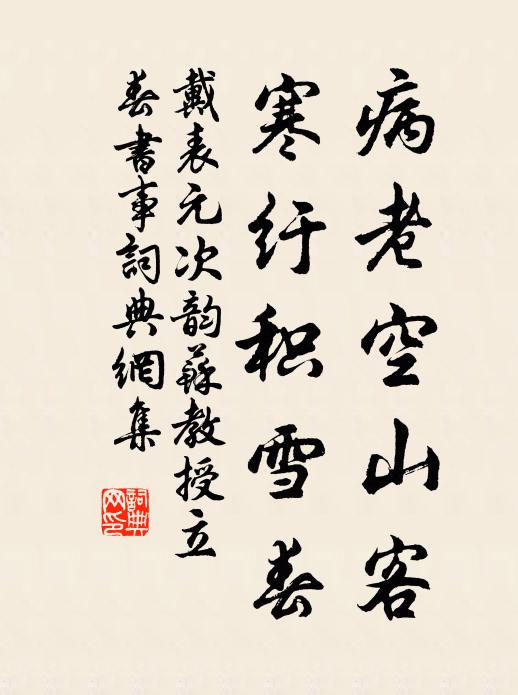 病老空山客
寒纡积雪春
戴表元次韵苏教授立
春书事词典網集
詞典
网印